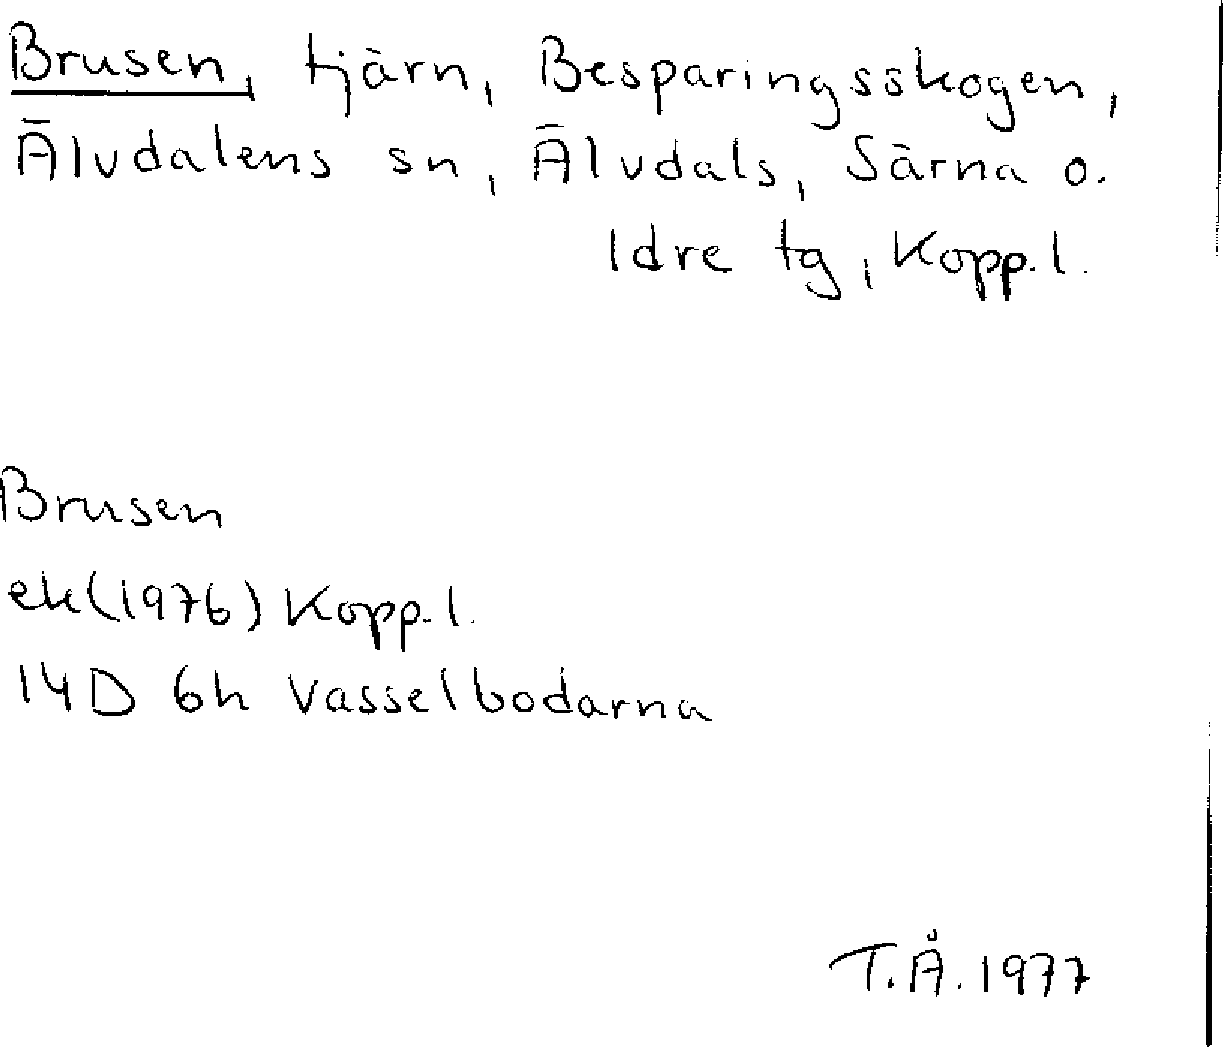 Brusen, tjärn, Besparingsskogen,
Älvdalens sn, Älvdals, Särna o.
Idre tg, Kopp.l.
Brusen
ek(1976) Kopp.l.
14D 6h Vasselbodarna
T.Å.1977